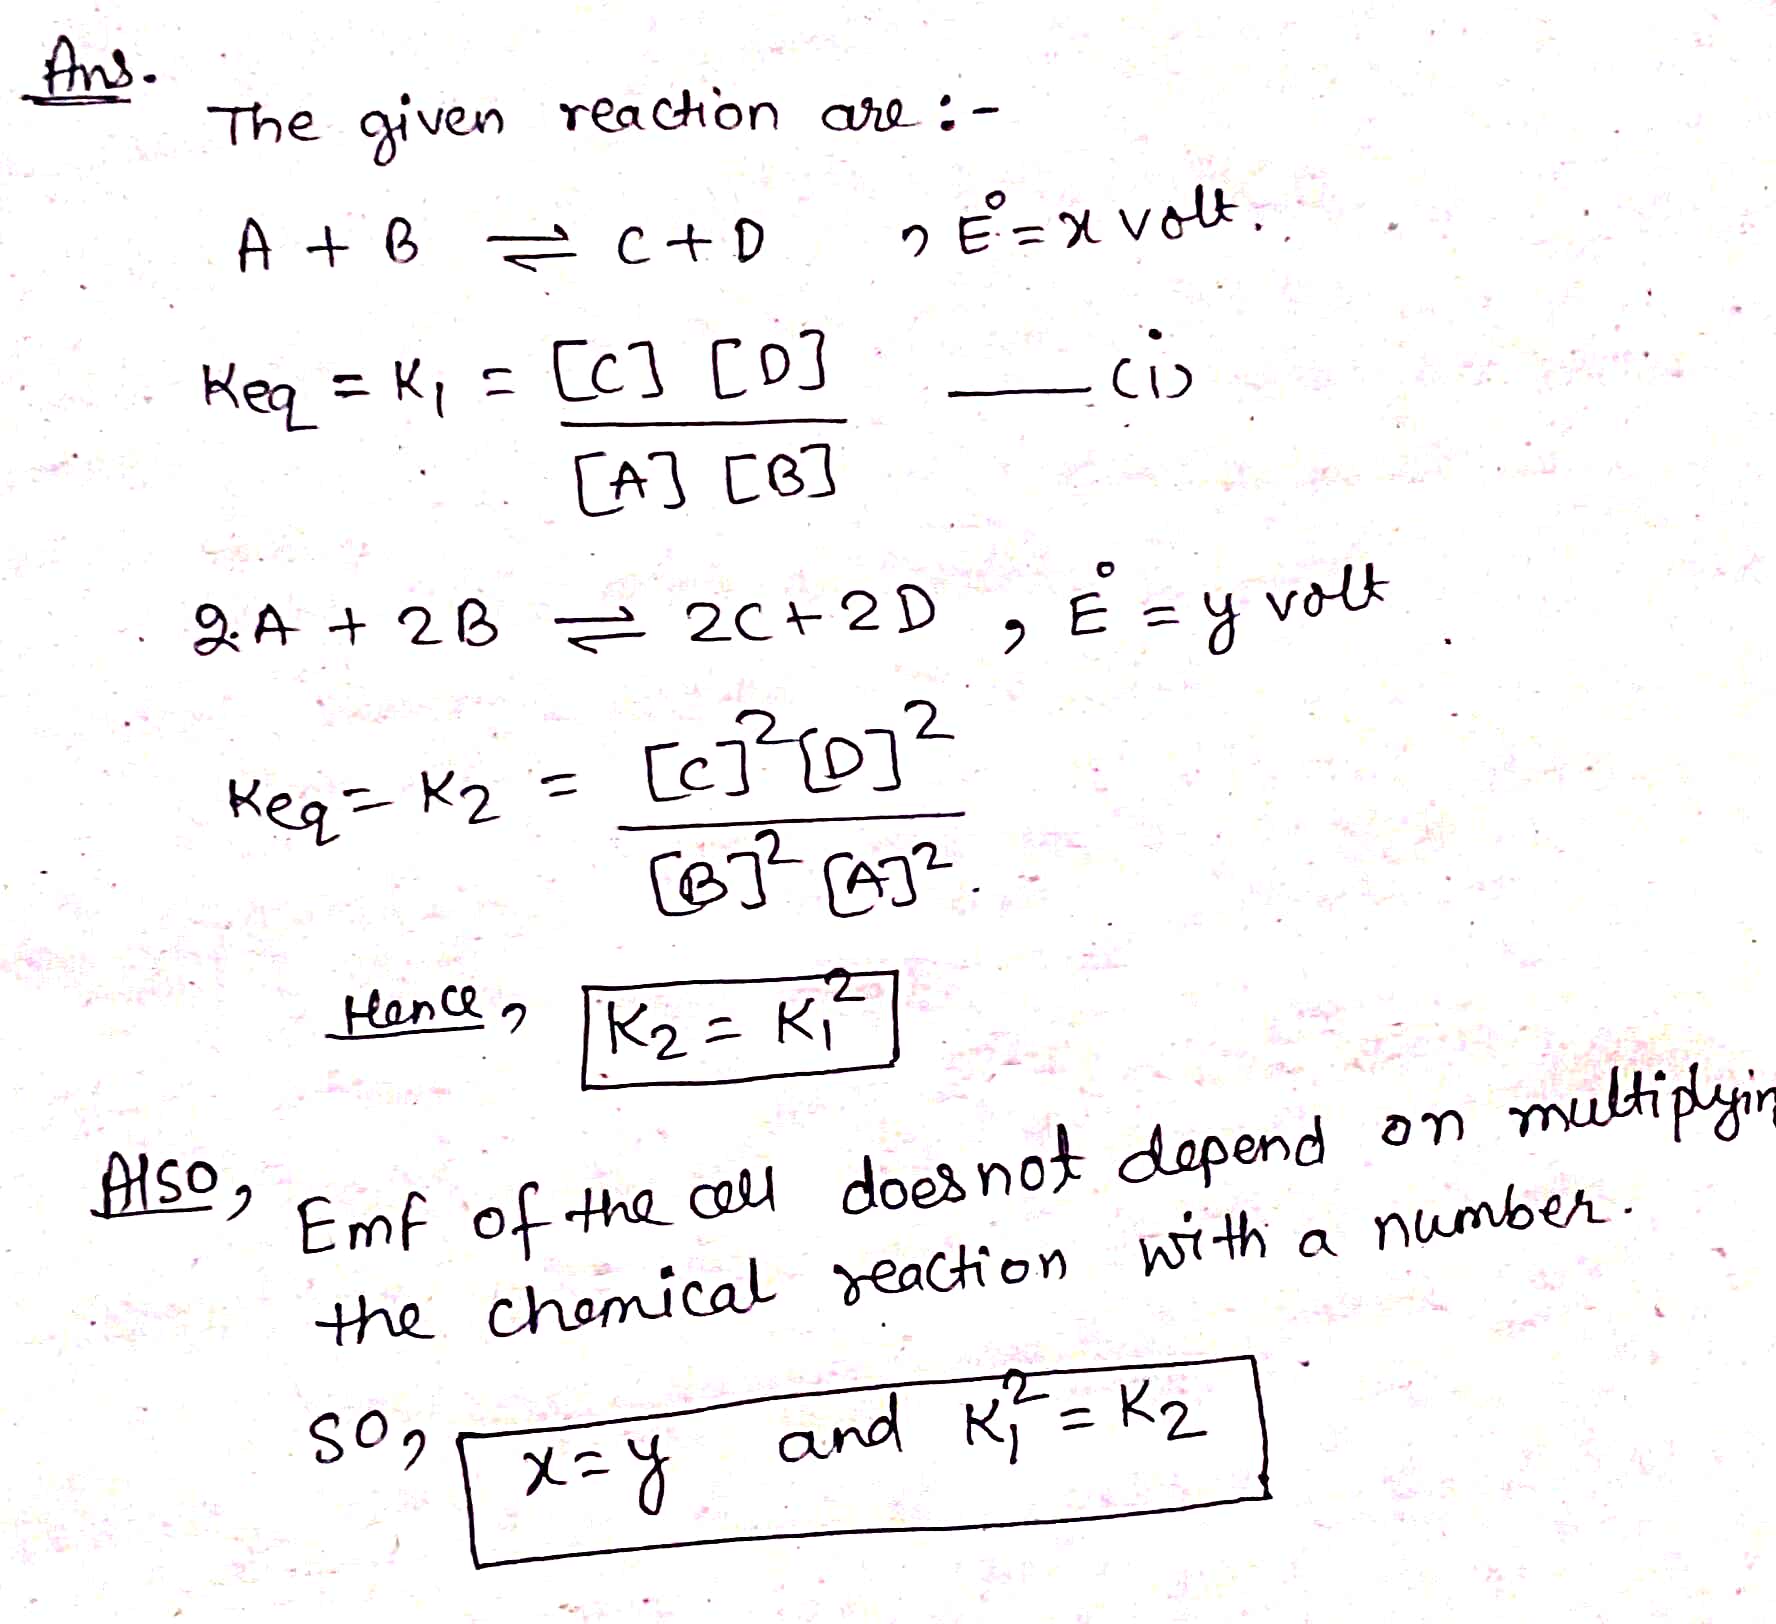 Ans.
The given reaction are :-
A + B ⇌ C + D , E° = x volt.
Keq = K₁ = [C] [D] / [A] [B] —— (i)
2A + 2B ⇌ 2C + 2D , E° = y volt
Keq = K₂ = [C]² [D]² / [B]² [A]².
Hence, K₂ = K₁²
Also, Emf of the cell does not depend on multiplyin
the chemical reaction with a number.
So, x = y and K₁² = K₂